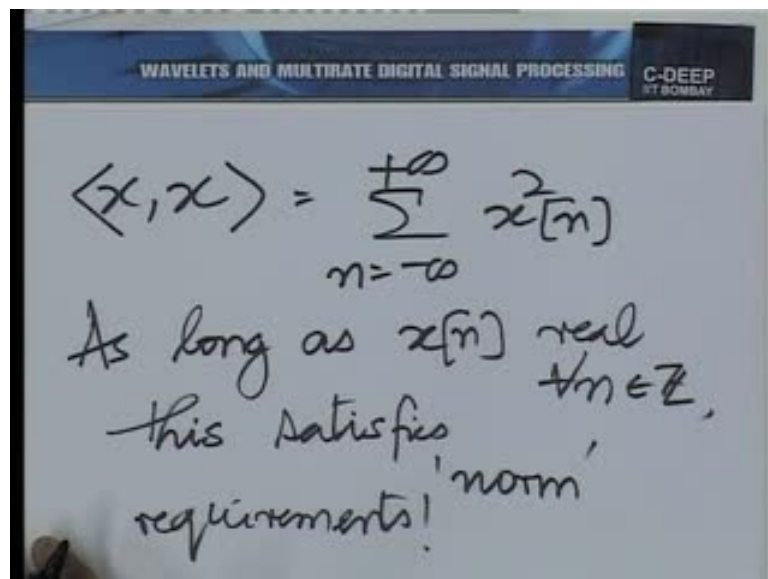 WAVELETS AND MULTIRATE DIGITAL SIGNAL PROCESSING
C-DEEP
IIT BOMBAY
⟨x, x⟩ = ∑_{n=-∞}^{+∞} x²[n]
As long as x[n] real
∀n ∈ ℤ,
this satisfies
'norm'
requirements!